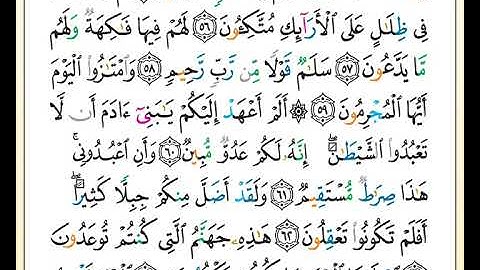 فِى ظِلَٰلٍ عَلَى ٱلْأَرَآئِكِ مُتَّكِـُٔونَ ٥٦ لَهُمْ فِيهَا فَٰكِهَةٌ وَلَهُم
مَّا يَدَّعُونَ ٥٧ سَلَٰمٌ قَوْلًا مِّن رَّبٍّ رَّحِيمٍ ٥٨ وَٱمْتَٰزُوا۟ ٱلْيَوْمَ
أَيُّهَا ٱلْمُجْرِمُونَ ٥٩ ۞ أَلَمْ أَعْهَدْ إِلَيْكُمْ يَٰبَنِىٓ ءَادَمَ أَن لَّا
تَعْبُدُوا۟ ٱلشَّيْطَٰنَ ۖ إِنَّهُۥ لَكُمْ عَدُوٌّ مُّبِينٌ ٦٠ وَأَنِ ٱعْبُدُونِى ۚ
هَٰذَا صِرَٰطٌ مُّسْتَقِيمٌ ٦١ وَلَقَدْ أَضَلَّ مِنكُمْ جِبِلًّا كَثِيرًا ۖ
أَفَلَمْ تَكُونُوا۟ تَعْقِلُونَ ٦٢ هَٰذِهِۦ جَهَنَّمُ ٱلَّتِى كُنتُمْ تُوعَدُونَ